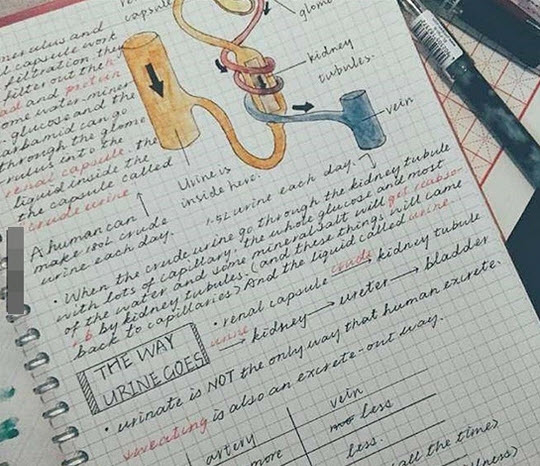 renal
capsule
glome
merulus and
l capsule work
filtration they
filter out the
and protein
some water, miner
glucose and the
carbamid can go
through the glome
rulus into the
renal capsule. the
liquid inside the
the capsule called
crude urine
kidney
tubules.
vein
Urine is
inside here.
1.5L urine each day.
A human can
make 180L crude
urine each day.
• When the crude urine go through the kidney tubule
with lots of capillary, the whole glucose and most
of the water and some mineral salt will get reabso-
r b by kidney tubules. (and these things will came
back to capillaries) And the liquid called urine.
• renal capsule crude → kidney tubule
urine → kidney → ureter → bladder
THE WAY
URINE GOES
• urinate is NOT the only way that human excrete.
sweating is also an excrete-out way.
artery vein
more less
less.
(all the time)